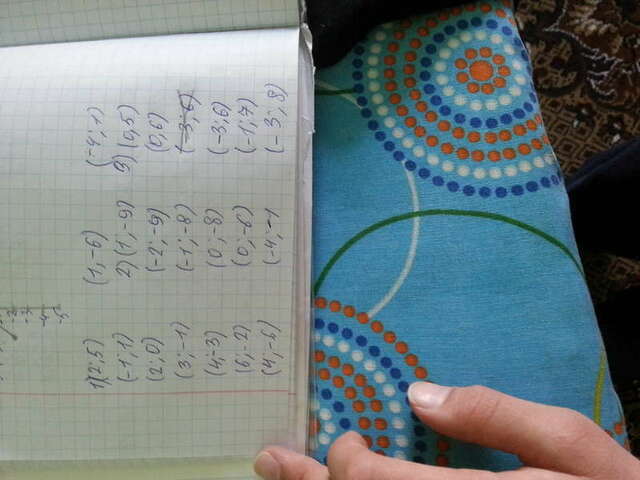 -2
-3
-4
-5
1)(2;5) (1,-6) (-4;1)
(-1;1) 2)(1;-9) 3)(0,5)
(2;0) (-2;-9) (0,6)
(3;-1) (-1;-8) (-3;6)
(4;-3) (0;-8) (-3;6)
(6,-2) (0;-6) (-1;7)
(4;-6) (-4;-1 (-3;8)